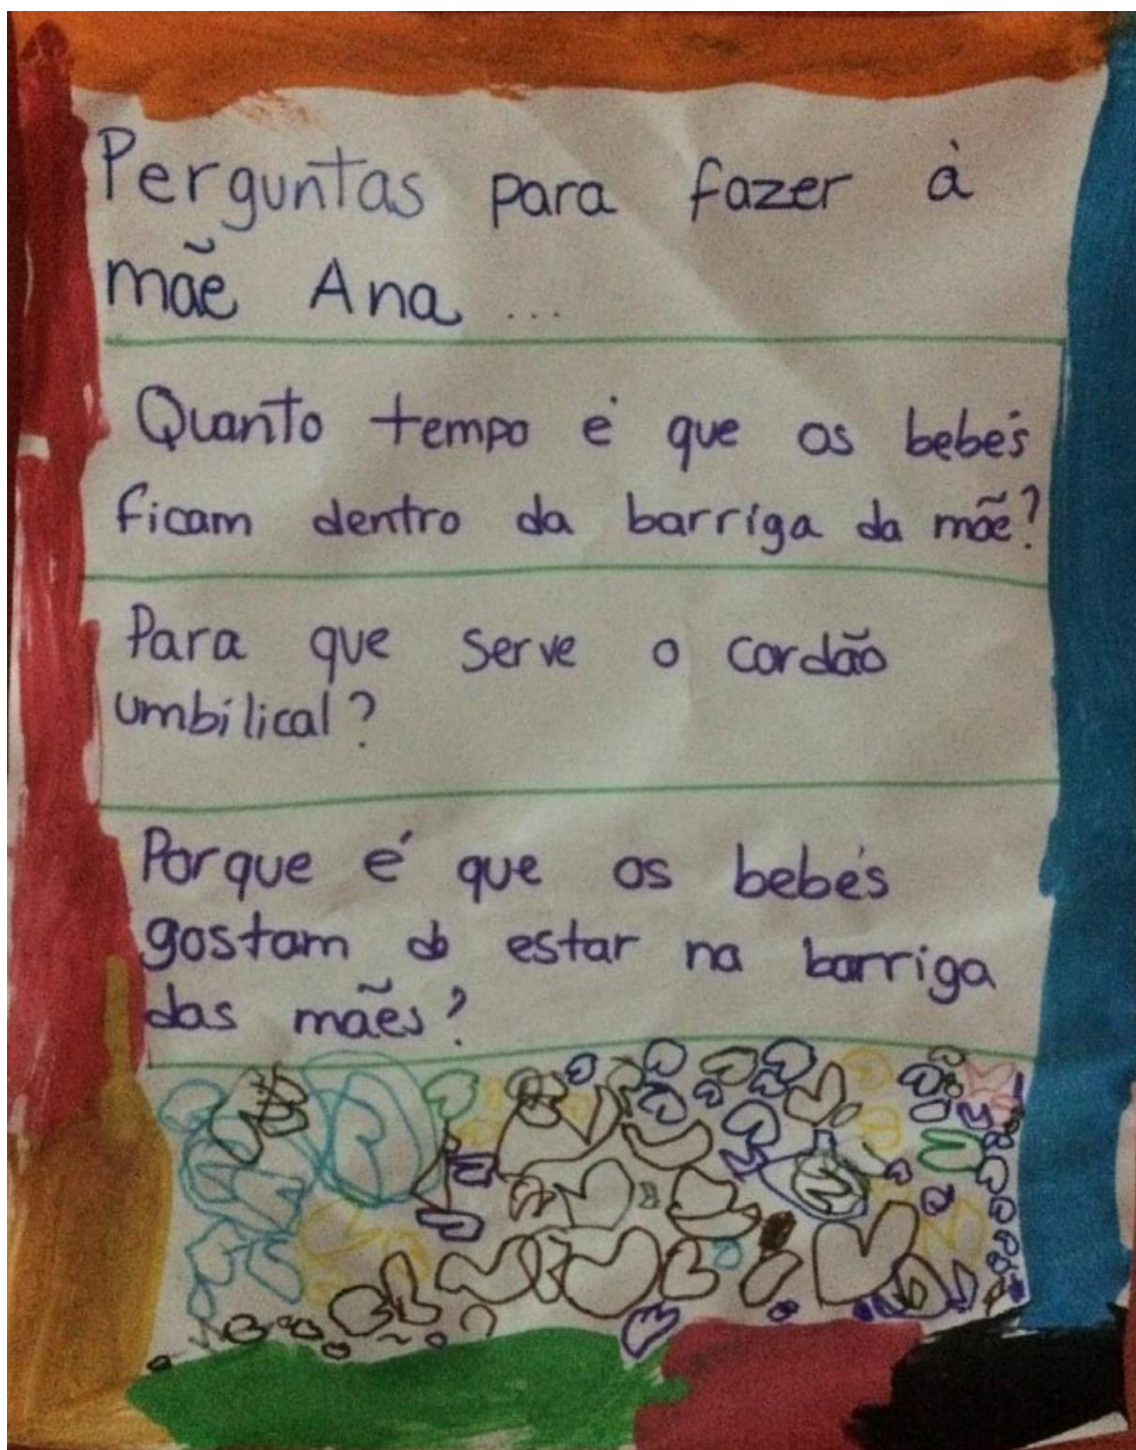 Perguntas para fazer à
mãe Ana ...
Quanto tempo é que os bebés
ficam dentro da barriga da mãe?
Para que serve o cordão
umbilical?
Porque é que os bebés
gostam de estar na barriga
das mães?